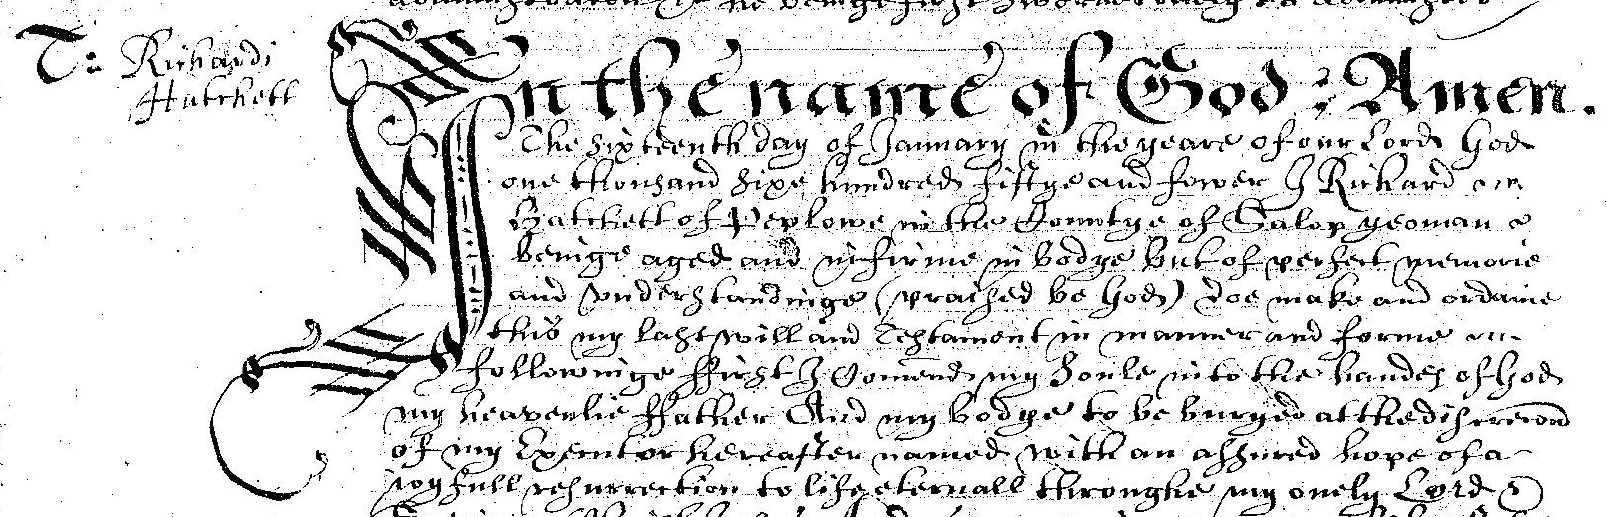 T: Richardi
Hatchett
In the name of God: Amen.
The sixteenth day of January in the yeare of our Lord God
one thousand sixe hundred fiftye and fower I Richard
Hatchett of Peplowe in the Countye of Salop yeoman
beinge aged and infirme in bodye but of perfect memorie
and understandinge (praised be God) doe make and ordaine
this my last will and Testament in manner and forme
followinge ffirst I Comend my Soule into the handes of God
my heavenlie ffather And my bodye to be buryed at the discrecon
of my Executor hereafter named with an assured hope of a
joyfull resurrection to life eternall throughe my onely Lord